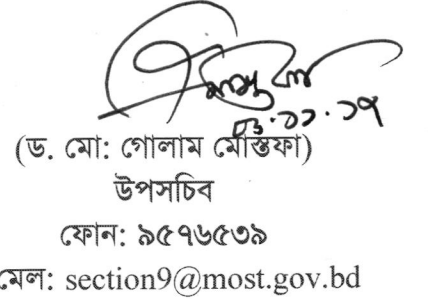 ০৩.১১.১৭
(ড. মো: গোলাম মোস্তফা)
উপসচিব
ফোন: ৯৫৭৬৫৩৯
মেল: section9@most.gov.bd